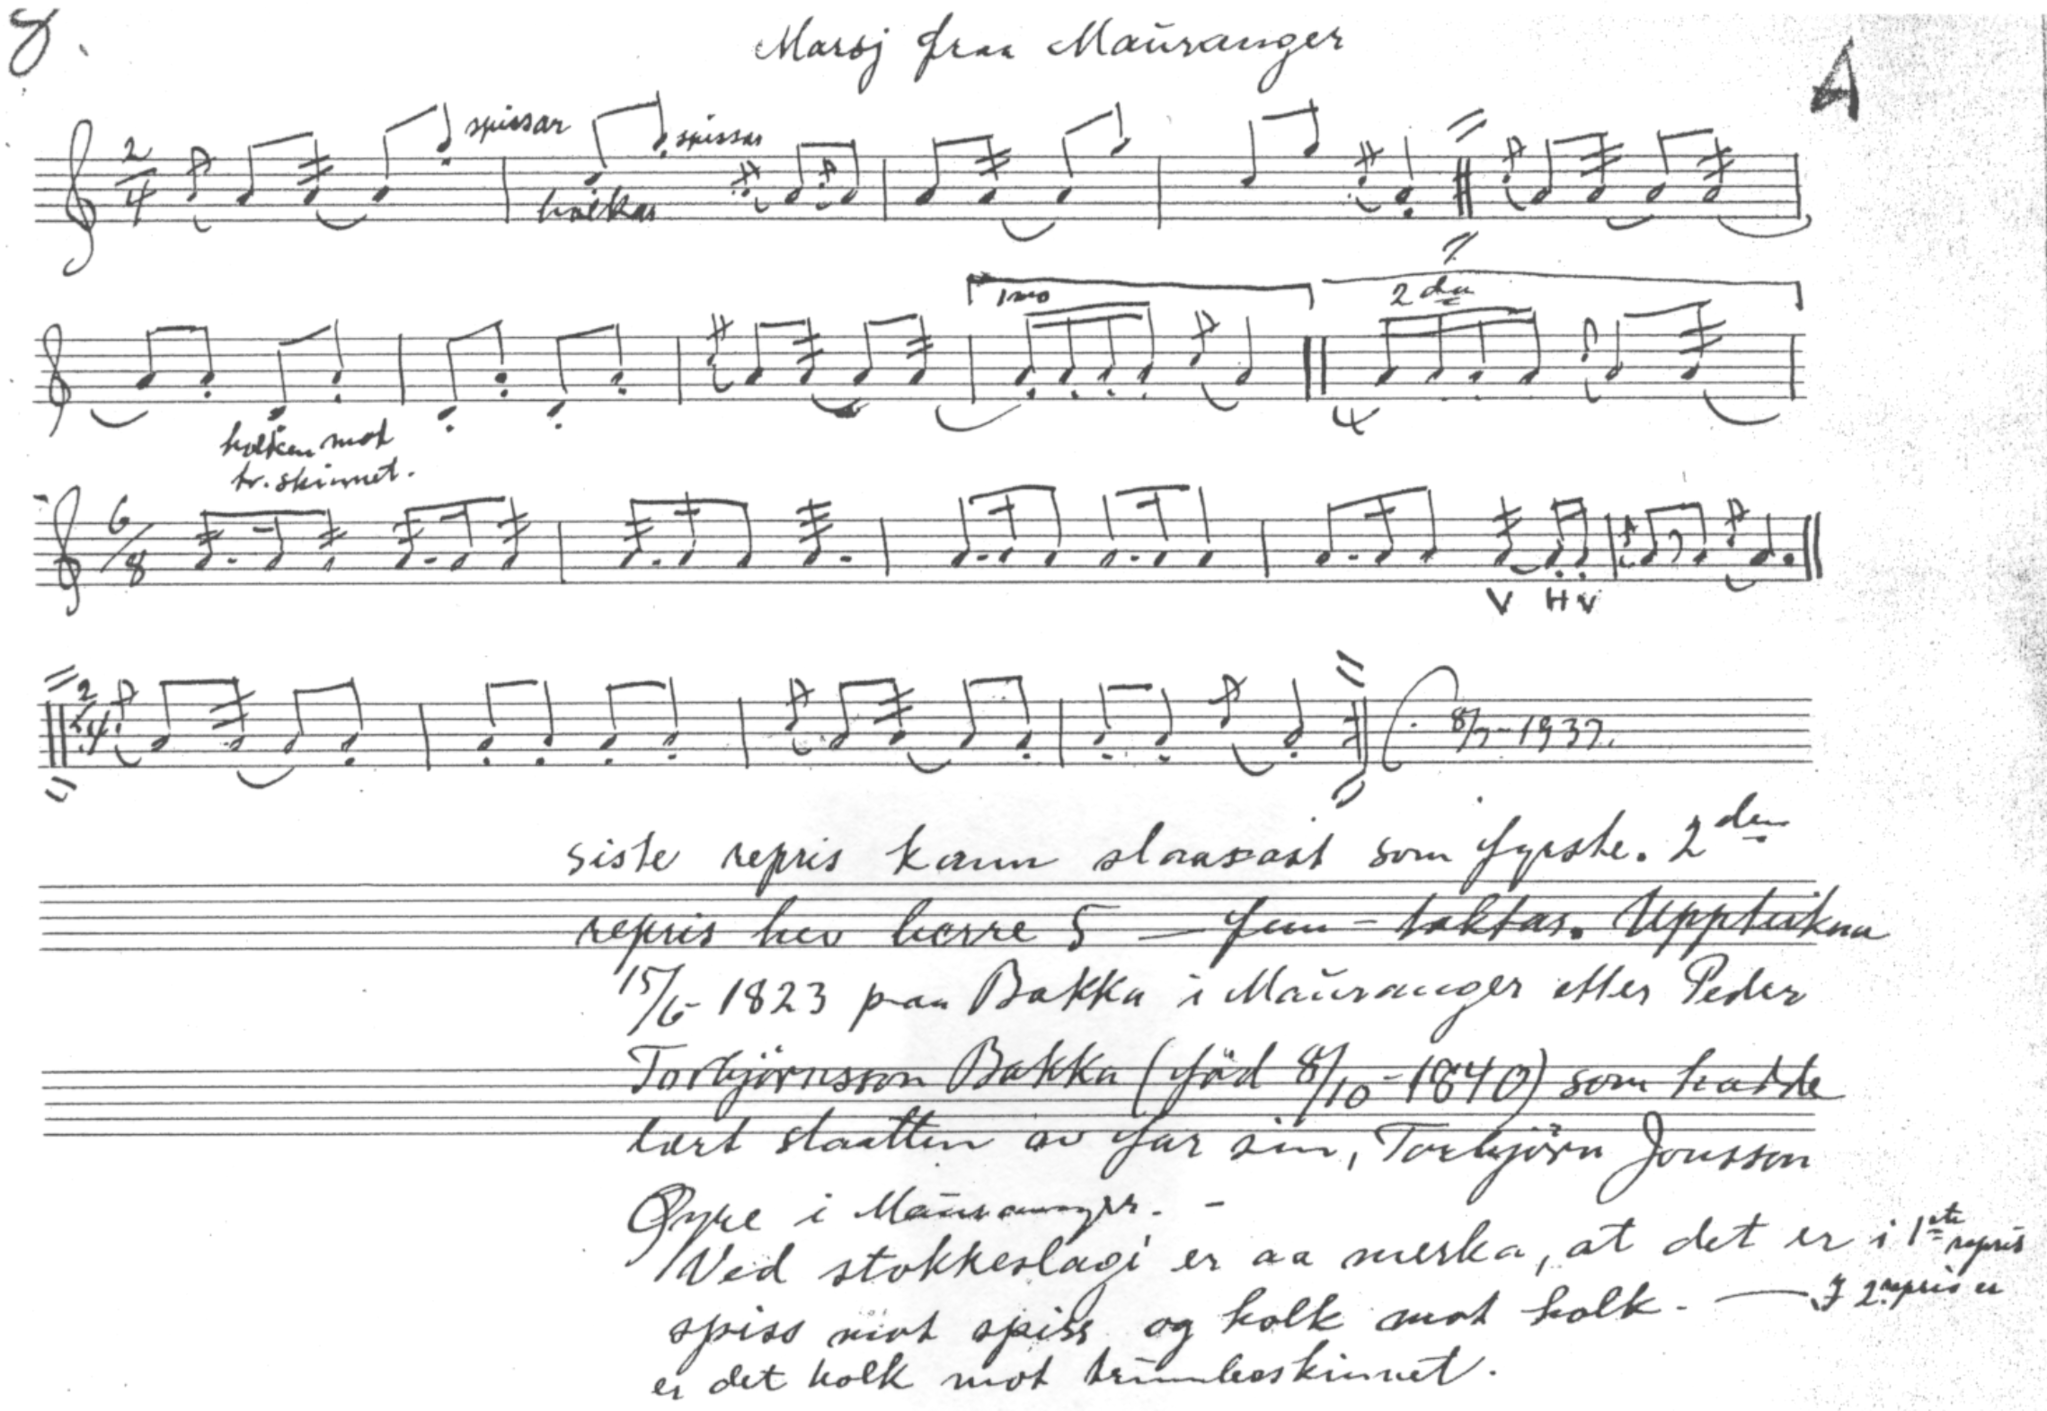 8.
Marsj fraa Mauranger
A
2/4
spissar
spissar
holkar
1mo
2da
holken mot
tr. skinnet.
6/8
V H V
2/4
8/7-1937.
siste repris kann slaaast som fyrste. 2den
repris hev berre 5 — fem – taktar. Uppteikna
15/6-1823 paa Bakka i Mauranger etter Peder
Torbjörnsson Bakka (född 8/10-1840) som hadde
lært slaatten av far sin, Torbjörn Jonsson
Øyre i Mauranger. –
Ved stokkeslagi er aa merka, at det er i 1ste repris
spiss mot spiss og holk mot holk. — I 2. repris er
er det holk mot trummeskinnet.